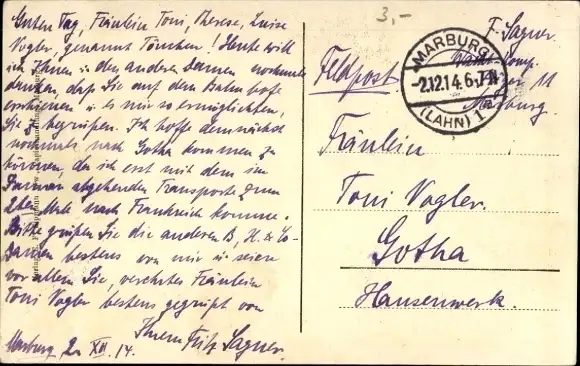 Guten Tag, Fräulein Toni, Therese, Luise
Vogler, genannt Tönchen! Heute will
ich Ihnen u. den anderen Damen nochmals
danken, daß Sie auf dem Bahnhofe
erschienen u. es mir so ermöglichten,
Sie zu begrüßen. Ich hoffe demnächst
nochmals nach Gotha kommen zu
können, da ich erst mit dem im
Januar abgehenden Transporte zum
2ten Male nach Frankreich komme.
Bitte grüßen Sie die anderen B, H. &
Damen bestens von mir u. seien
vor allem Sie, verehrtes Fräulein
Toni Vogler bestens gegrüßt von
Ihrem Fritz Sagner.
Marburg, 2. XII. 14.
3,-
F. Sagner
Komp.
Jäger 11
Marburg.
Feldpost
MARBURG
-2.12.14.6-7N
(LAHN) 1
Fräulein
Toni Vogler.
Gotha
Hansenwerk.